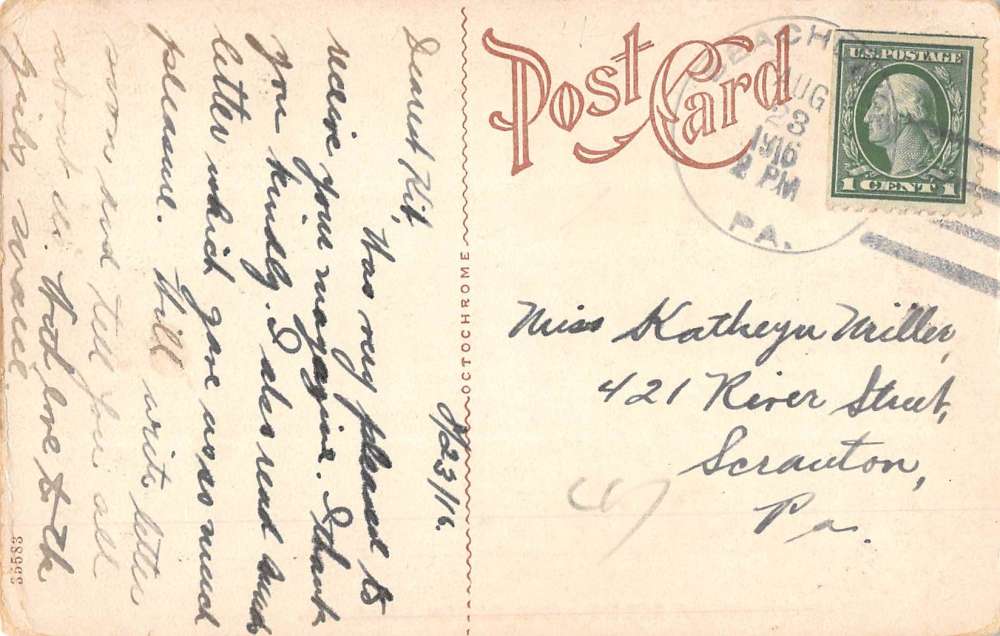 8/23/16.
Dearest Kit,
Was very pleased to
receive your magazine. I thank
you kindly. I also read
letter which gave us so much
pleasure. Will write letter
soon and tell you all
about us. With love to the
OCTOCHROME
35583
Post Card
BEACH
AUG
23
1916
2 PM
PA.
U.S. POSTAGE
1 CENT 1
Miss Kathryn Miller,
421 River Street,
Scranton,
Pa.